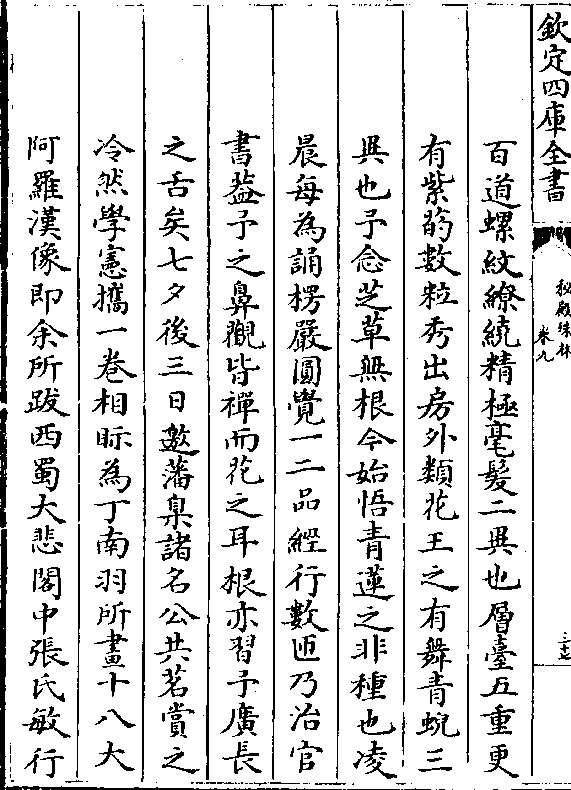 欽定四庫全書
秘殿珠林
卷九
三十七
百道螺紋繚繞精極毫髮二異也層臺五重更
有紫葯數粒秀出房外類花王之有舞青蜺三
異也予念芝草無根今始悟青蓮之非種也凌
晨每為誦楞嚴圓覺一二品經行數匝乃治官
書葢予之鼻觀皆禪而花之耳根亦習予廣長
之舌矣七夕後三日邀藩臬諸名公共茗賞之
冷然學憲攜一卷相眎為丁南羽所畫十八大
阿羅漢像即余所跋西蜀大悲閣中張氏敏行